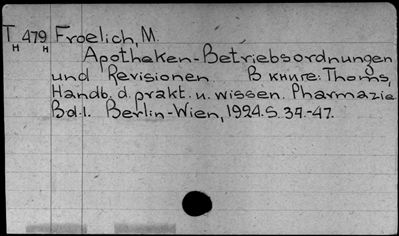 T 479 Froelich, M.
н н
Apotheken-Betriebsordnungen
und Revisionen В книге: Thoms,
Handb. d. prakt. u. wissen. Pharmazie
Bd.1. Berlin-Wien, 1924. S. 37.-47.